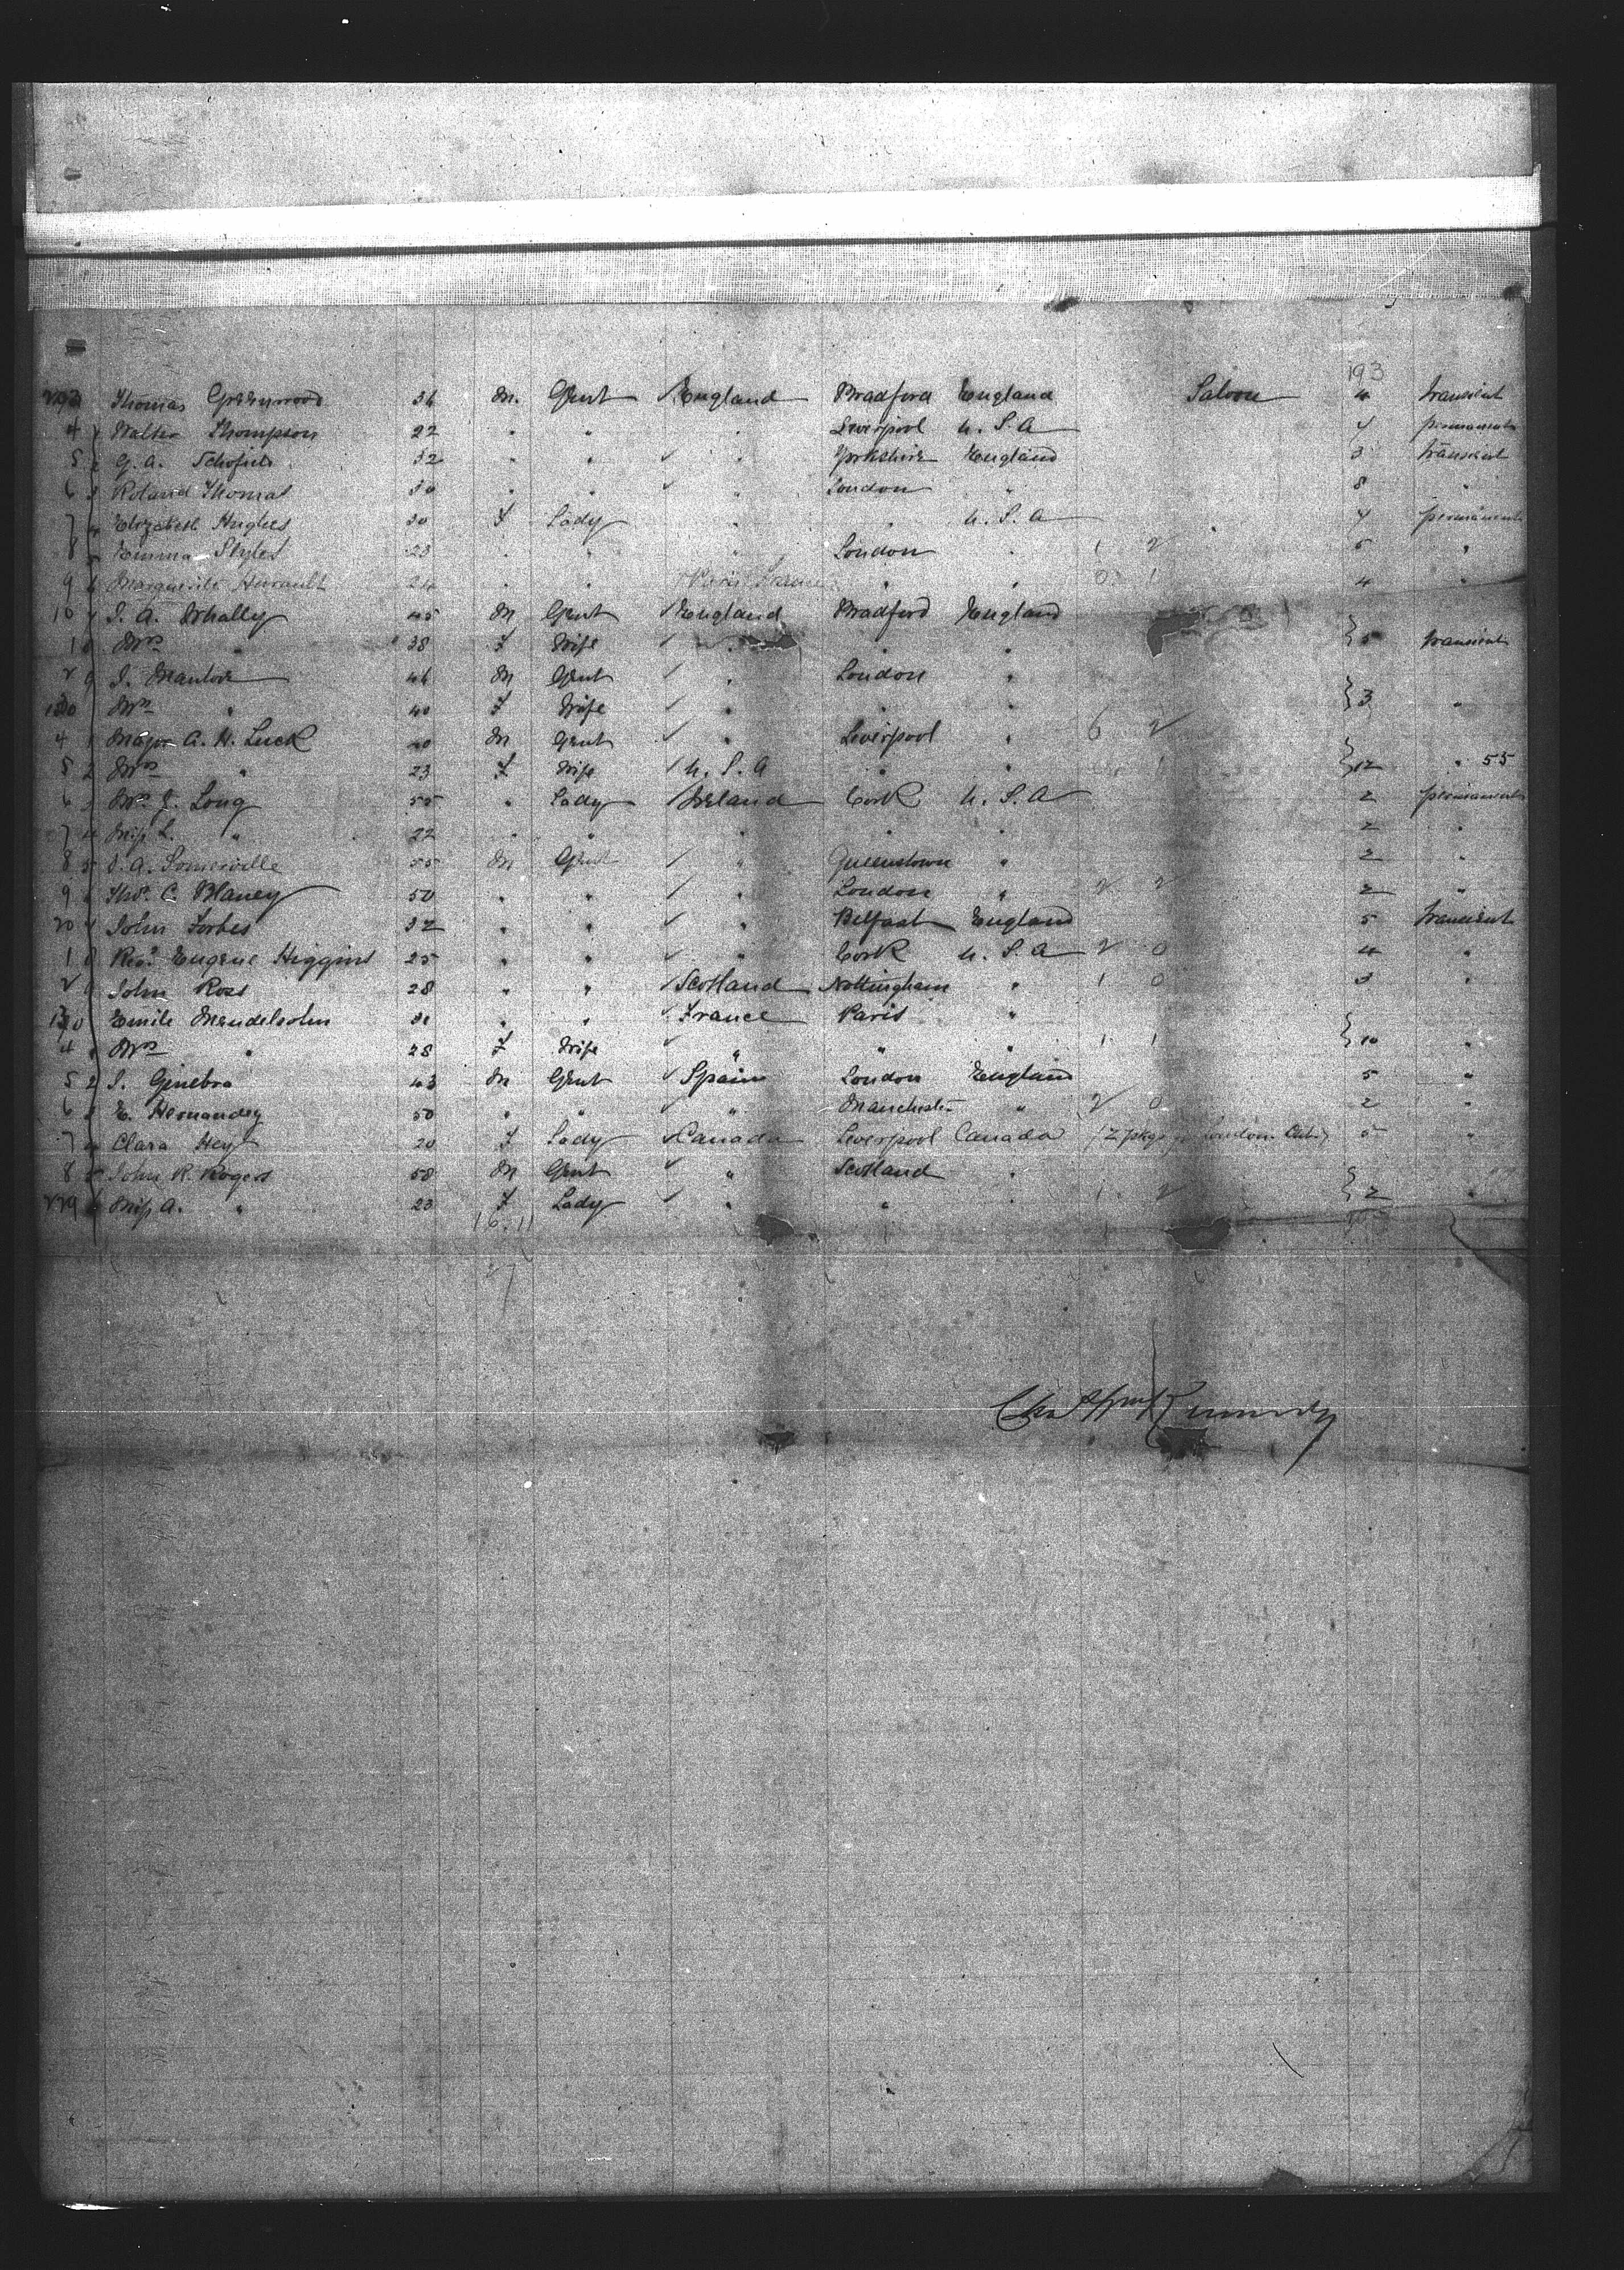 193
Thomas Greenwood 36 M. Gent England Bradford England Saloon 4 transient
4 Walter Thompson 22 " " " Liverpool U.S.A 4 permanent
5 2 G. A. Schofield 32 " " " Yorkshire England 3 transient
6 3 Roland Thomas 30 " " " London " 8 "
7 4 Elizabeth Hughes 30 F Lady " " U.S.A 4 permanent
8 5 Emma Styles 23 " " " London " 1 2 5 "
9 6 Marguerite 24 " " Paris France " " 0 1 4 "
10 7 J. A. Whally 45 M Gent England Bradford England
1 8 Mrs " 38 F Wife " " " } 5 transient
2 9 J. Mantor 46 M Gent " London "
Mrs " 40 F Wife " " " } 3 "
4 1 Major A. W. Luck 40 M Gent " Liverpool " 6 2
5 2 Mrs " 23 F Wife U.S.A " " } 12 " 55
6 3 Mrs J. Long 55 " Lady Ireland Cork U.S.A 2 permanent
7 4 Miss L. " 22 " " " " " 2 "
8 5 J. A. Somerville 55 M Gent " Queenstown " 2 "
9 6 Thos. C. Blaney 50 " " " London " 2 2 2 "
20 7 John Forbes 32 " " " Belfast England 5 transient
1 8 Revd Eugene Higgins 25 " " " Cork U.S.A 2 0 4 "
2 9 John Ross 28 " " Scotland Nottingham " 1 0 3 "
Emile Mendelsohn 31 " " France Paris "
4 1 Mrs " 28 F Wife " " " 1 1 } 10 "
5 2 S. Ginebra 43 M Gent Spain London England 5 "
6 3 E. Hernandez 50 " " " Manchester " 2 0 2 "
7 4 Clara Hey 20 F Lady Canada Liverpool Canada (2 pkgs London Ont.) 5 "
8 5 John R. Rogers 58 M Gent " Scotland "
229 6 Miss A. " 23 F Lady " " " 1 2 } 2 "
16 11
27